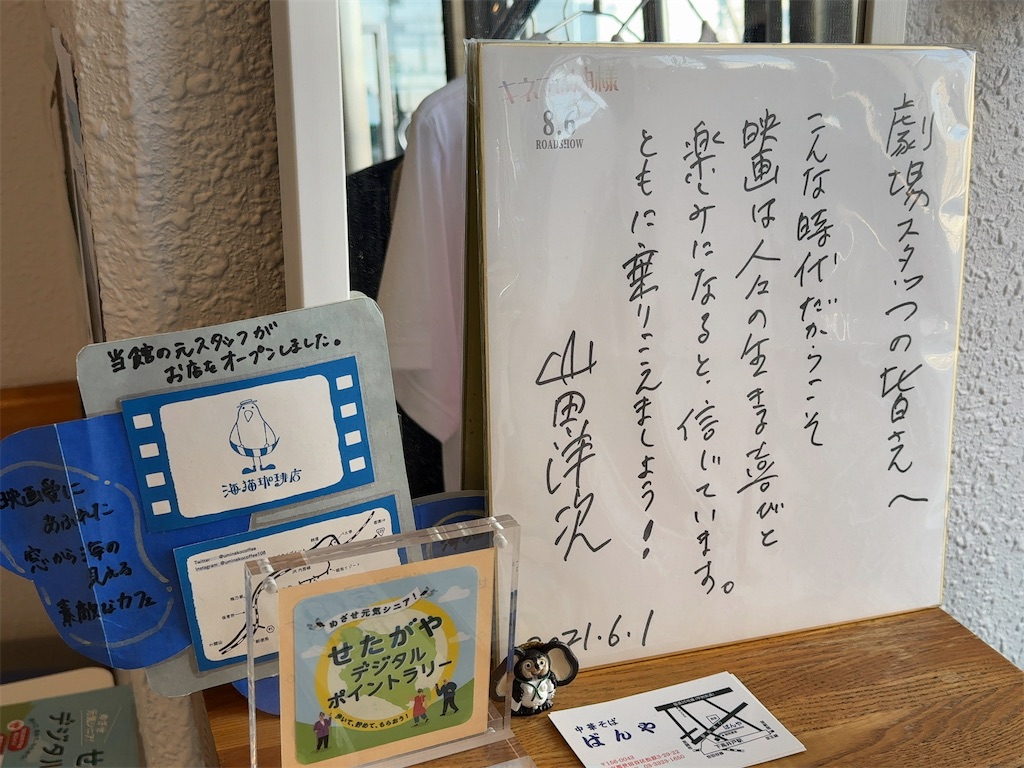 劇場スタッフの皆さんへ
こんな時代だからこそ
映画は人々の生きる喜びと
楽しみになると、信じています。
ともに乗りこえましょう!
山田洋次
21.6.1
8.6
ROADSHOW
当館の元スタッフが
お店をオープンしました。
海猫珈琲店
映画愛に
あふれた
窓から海の
見える
素敵なカフェ
Twitter:@uminekocoffee
Instagram:@uminekocoffee108
めざせ元気シニア!
せたがや
デジタル
ポイントラリー
歩いて、貯めて、もらおう!
中華そば
ばんや
ばんや
下高井戸駅
デジタル
せ